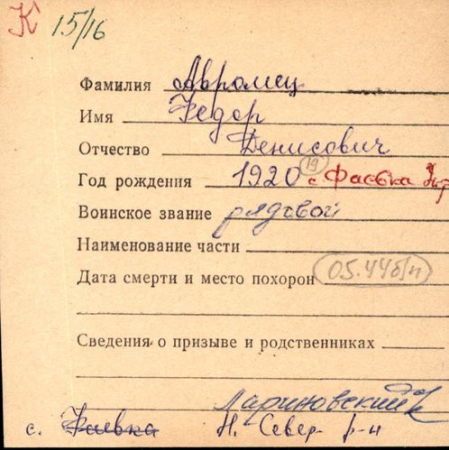 К 15/16
Фамилия Авромец
Имя Федор
Отчество Денисович
Год рождения 1920 (19) с. Фаевка
Воинское звание рядовой
Наименование части
Дата смерти и место похорон 05.44 б/п
Сведения о призыве и родственниках
Лариновский с/с
с. Фаевка Н. Север р-н